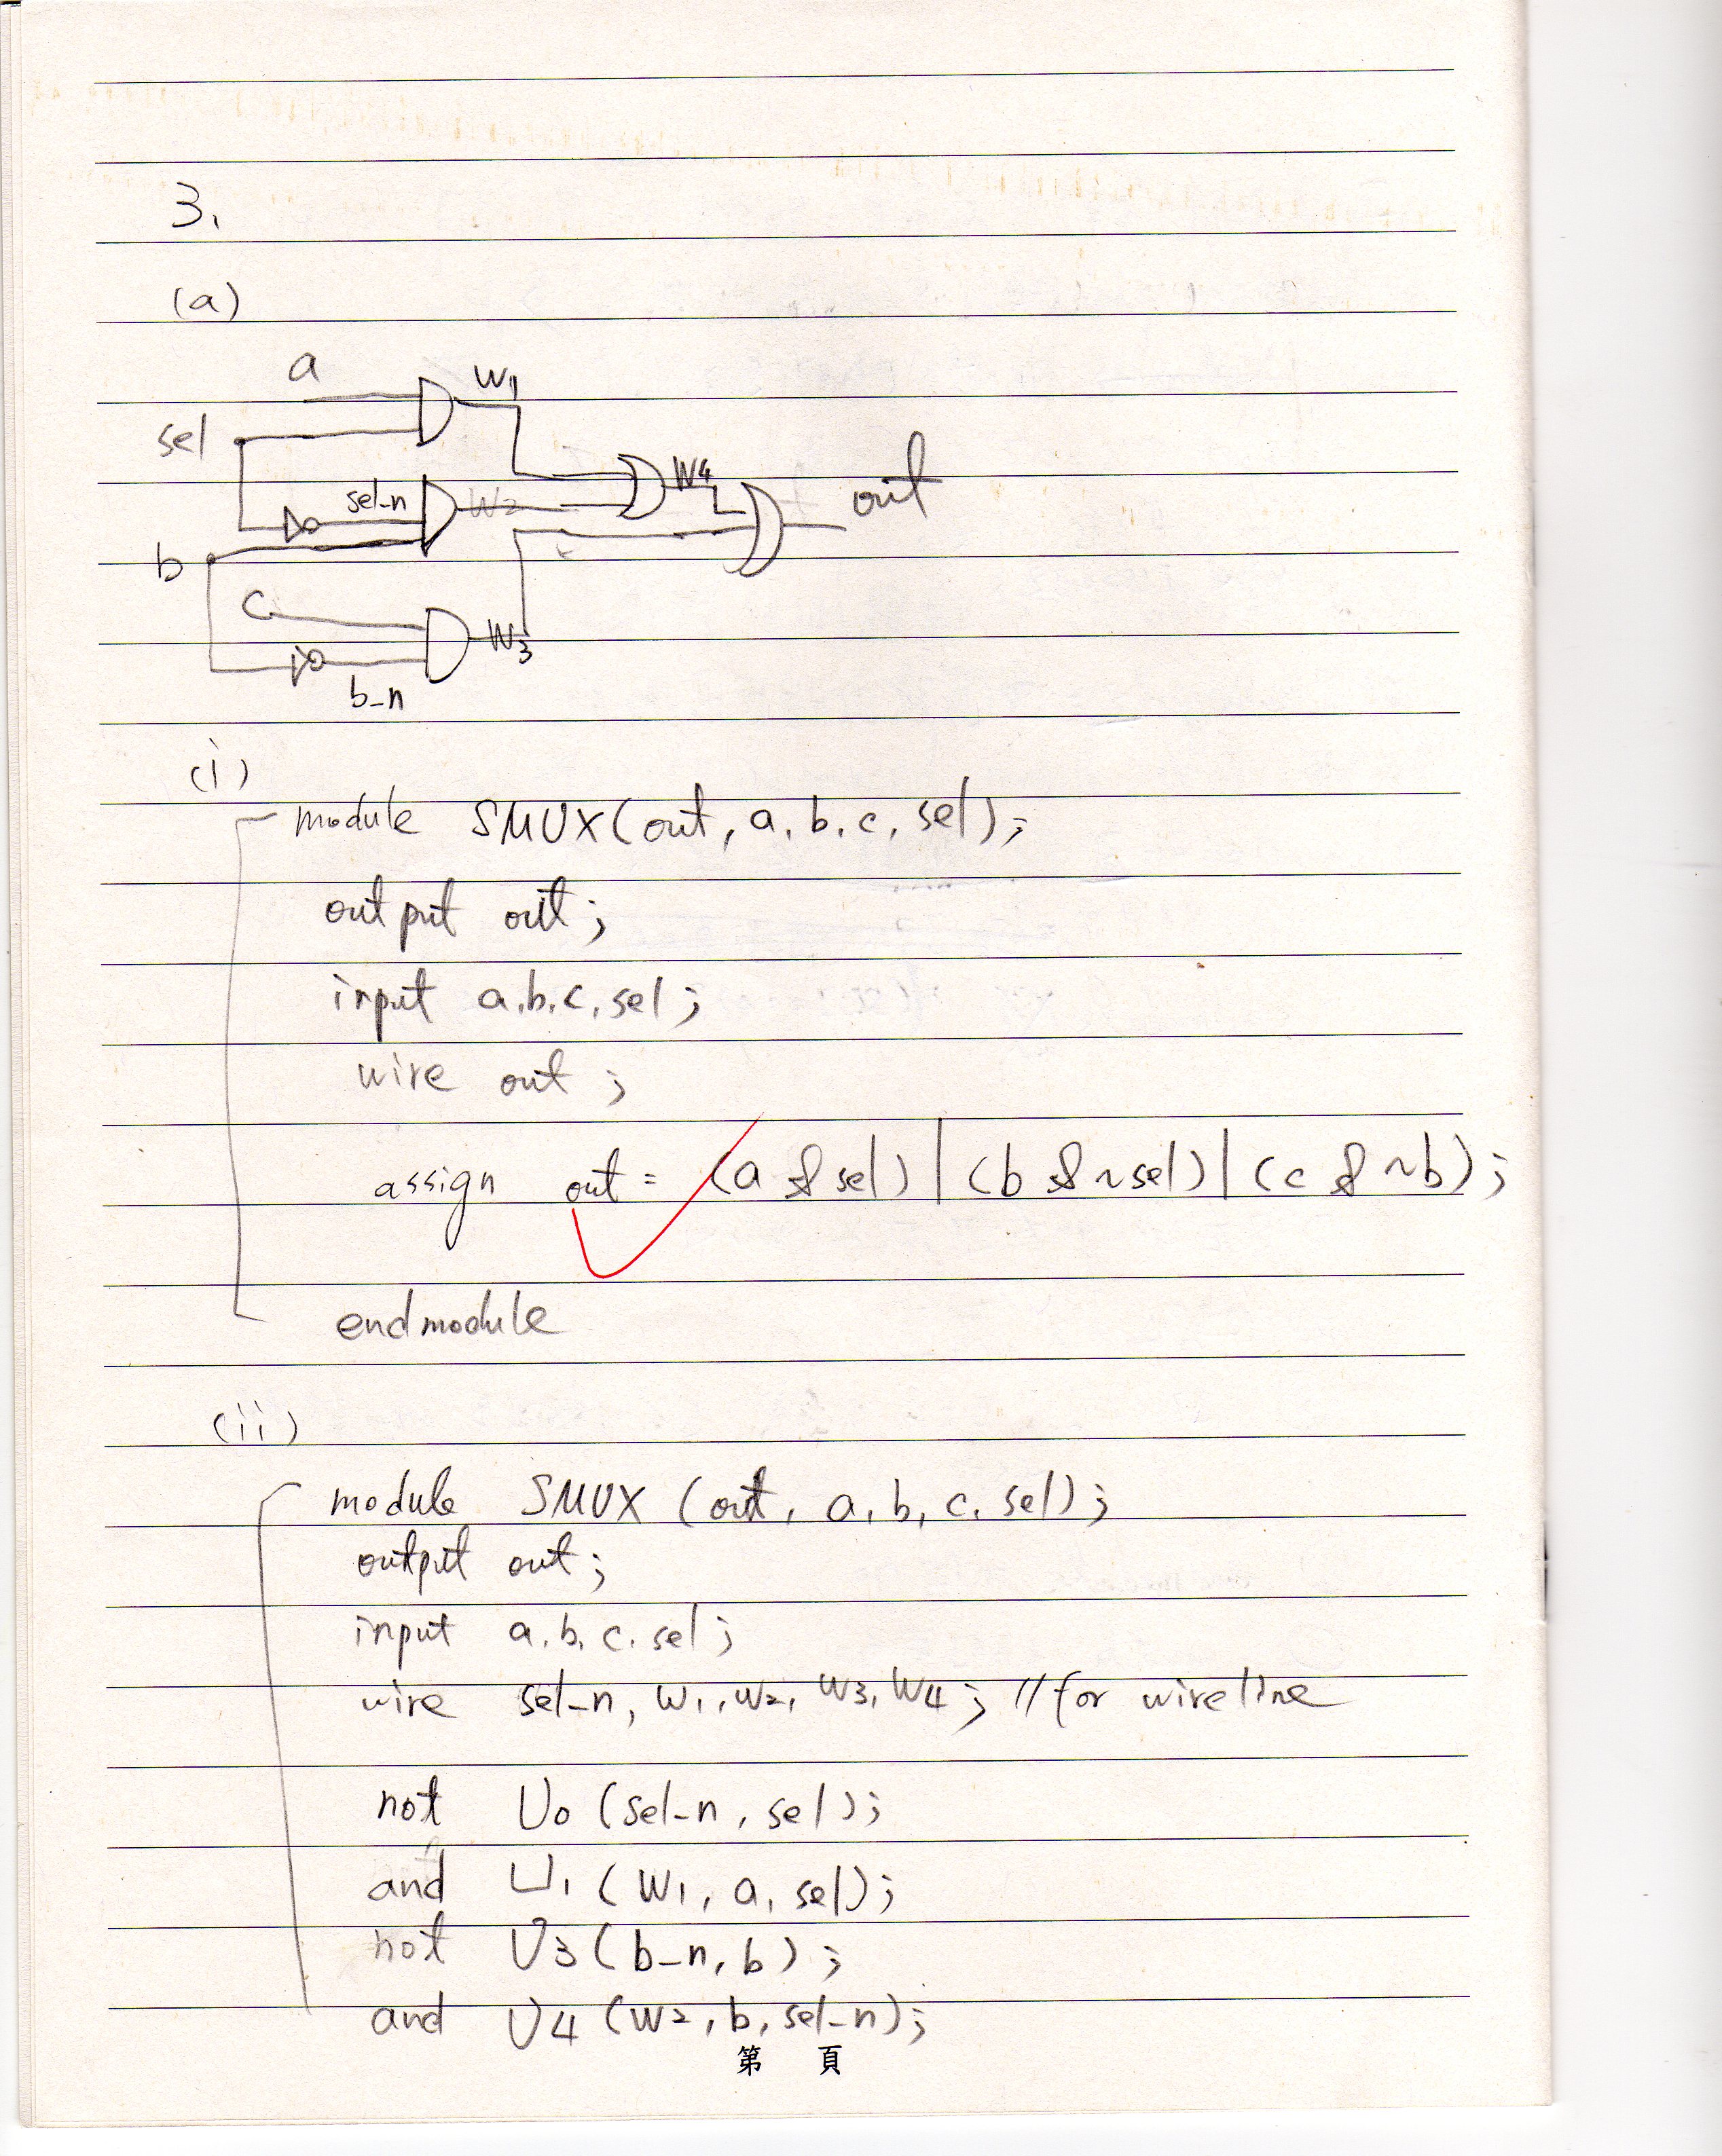 3.
(a)
a W1
sel W4 out
sel_n W2
b
c
W3
b_n
(i)
module SMUX(out, a, b, c, sel);
output out;
input a, b, c, sel;
wire out;
assign out = (a & sel) | (b & ~sel) | (c & ~b);
endmodule
(ii)
module SMUX (out, a, b, c, sel);
output out;
input a, b, c, sel;
wire sel_n, W1, W2, W3, W4; // for wireline
not U0 (sel_n, sel);
and U1 (W1, a, sel);
not U3 (b_n, b);
and U4 (W2, b, sel_n);
第 頁